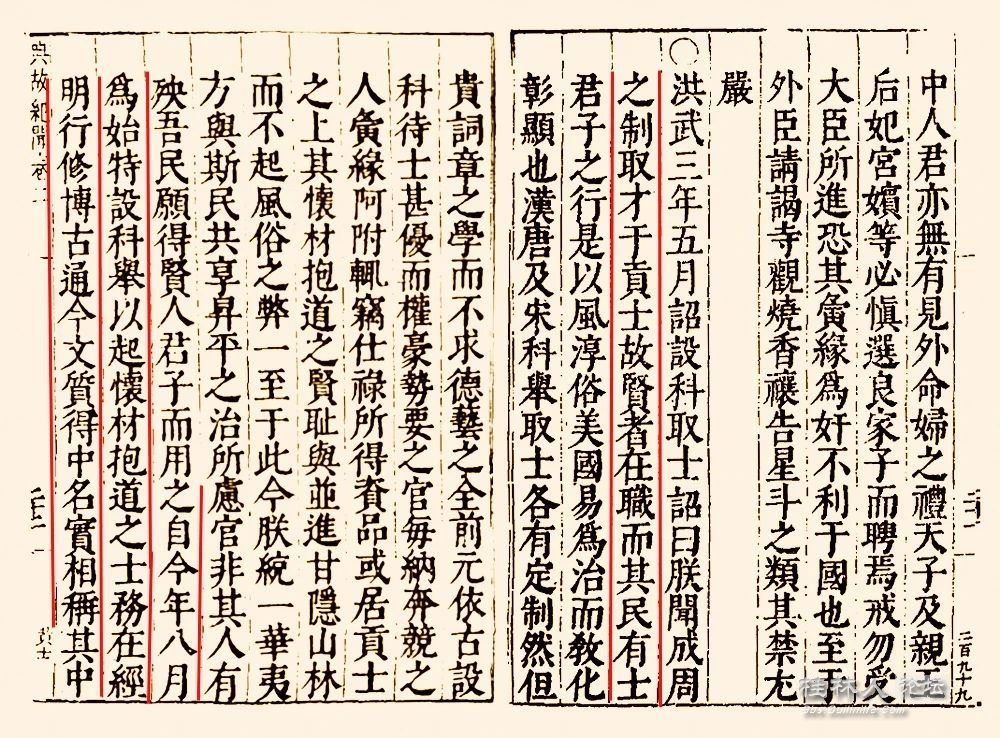 中人君亦無有見外命婦之禮天子及親王
后妃宮嬪等必慎選良家子而聘焉戒勿受
大臣所進恐其夤緣為奸不利于國也至于
外臣請謁寺觀燒香禳告星斗之類其禁尤
嚴
〇洪武三年五月詔設科取士詔曰朕聞成周
之制取才于貢士故賢者在職而其民有士
君子之行是以風淳俗美國易為治而教化
彰顯也漢唐及宋科舉取士各有定制然但
貴詞章之學而不求德藝之全前元依古設
科待士甚優而權豪勢要之官每納奔競之
人夤緣阿附輒竊仕祿所得資品或居貢士
之上其懷材抱道之賢恥與並進甘隱山林
而不起風俗之弊一至于此今朕統一華夷
方與斯民共享昇平之治所慮官非其人有
殃吾民願得賢人君子而用之自今年八月
為始特設科舉以起懷材抱道之士務在經
明行修博古通今文質得中名實相稱其中
典故紀聞卷二
二百九十九
桂林人 论坛